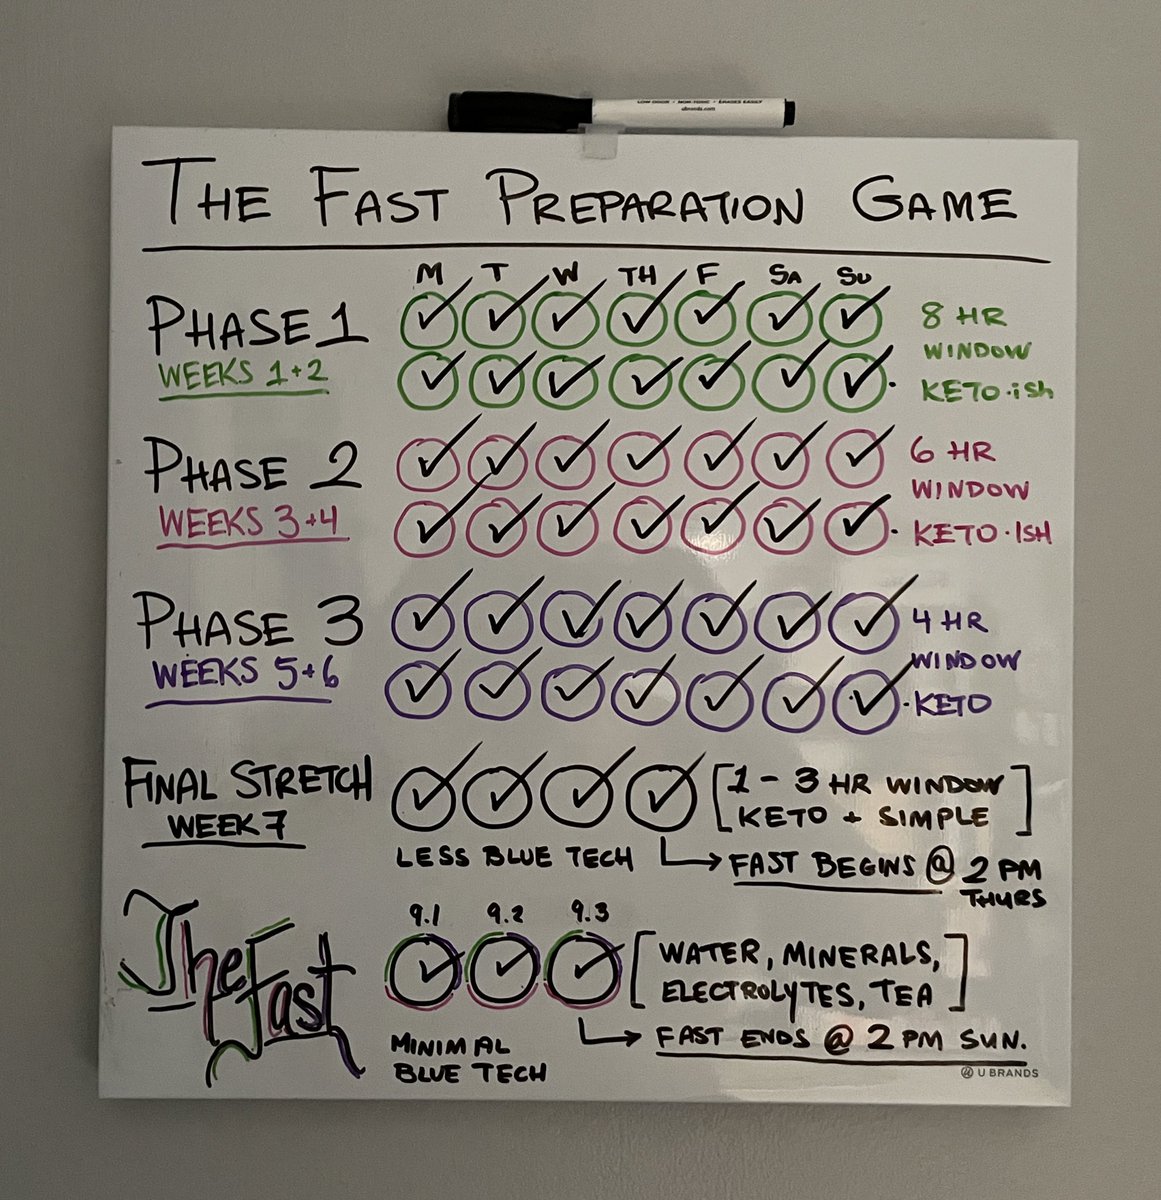 LOW ODOR • NON-TOXIC • ERASES EASILY
ubrands.com
THE FAST PREPARATION GAME
M T W TH F SA SU
PHASE 1
WEEKS 1+2
8 HR
WINDOW
KETO·ish
PHASE 2
WEEKS 3+4
6 HR
WINDOW
KETO·ISH
PHASE 3
WEEKS 5+6
4 HR
WINDOW
KETO
FINAL STRETCH
WEEK 7
[1 - 3 HR WINDOW
KETO + SIMPLE]
LESS BLUE TECH
FAST BEGINS @ 2 PM
THURS
The Fast
9.1 9.2 9.3
[WATER, MINERALS,
ELECTROLYTES, TEA]
FAST ENDS @ 2 PM SUN.
MINIMAL
BLUE TECH
U BRANDS